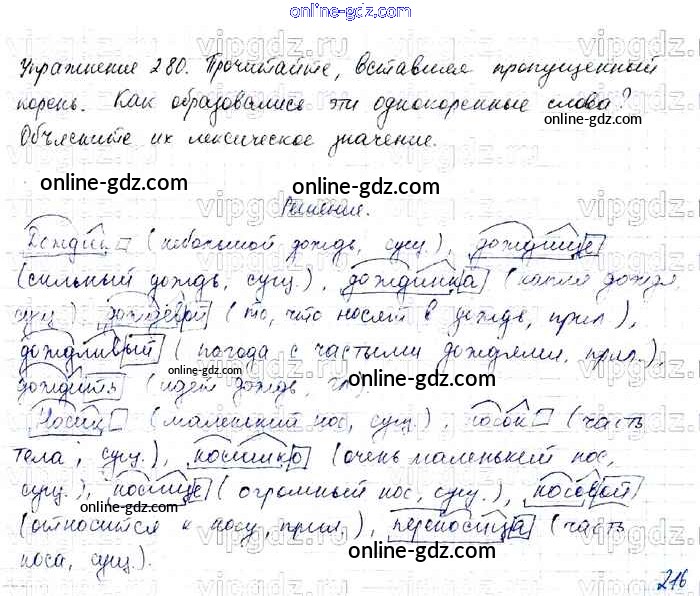 online-gdz.com
Упражнение 280. Прочитайте, вставляя пропущенный
корень. Как образовались эти однокоренные слова?
online-gdz.com
Объясните их лексическое значение.
online-gdz.com online-gdz.com
Решение.
Дождик (небольшой дождь, сущ.), дождище
(сильный дождь, сущ.), дождинка (капля дождя,
сущ.), дождевой (то, что носят в дождь, прил.),
online-gdz.com
дождливый (погода с частыми дождями, прил.),
online-gdz.com
дождить (идет дождь, гл.).
Носик (маленький нос, сущ.), носок (часть
online-gdz.com
тела, сущ.), носишко (очень маленький нос,
сущ.), носище (огромный нос, сущ.), носовой
online-gdz.com
(относится к носу, прил.), переносица (часть
online-gdz.com
носа, сущ.).
216
online-gdz.com